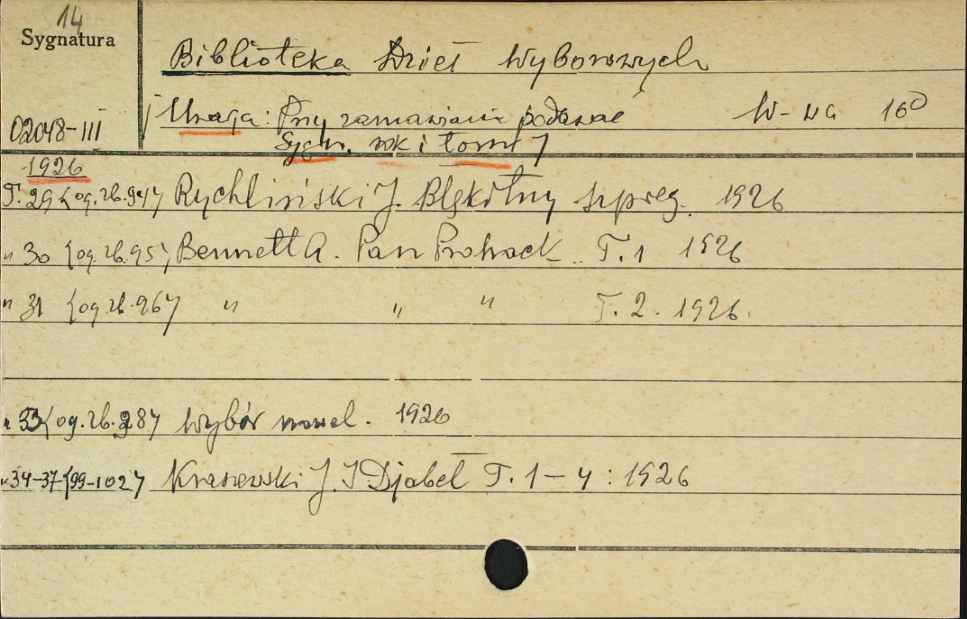 14
Sygnatura
Biblioteka Dzieł Wyborowych
02048-III
[Uwaga: Przy zamawianiu podawać W-wa 16°
Sygn. rok i tom!]
1926
T. 29 [og. zb. 94] Rychliński J. Błękitny szpieg. 1926
" 30 [og. zb. 95] Bennett A. Pan Prohack. T. 1 1926
" 31 [og. zb. 96] " " " T. 2. 1926.
" 33 [og. zb. 98] Wybór nowel. 1926
" 34-37 [99-102] Kraszewski J. I Djabeł T. 1-4: 1926